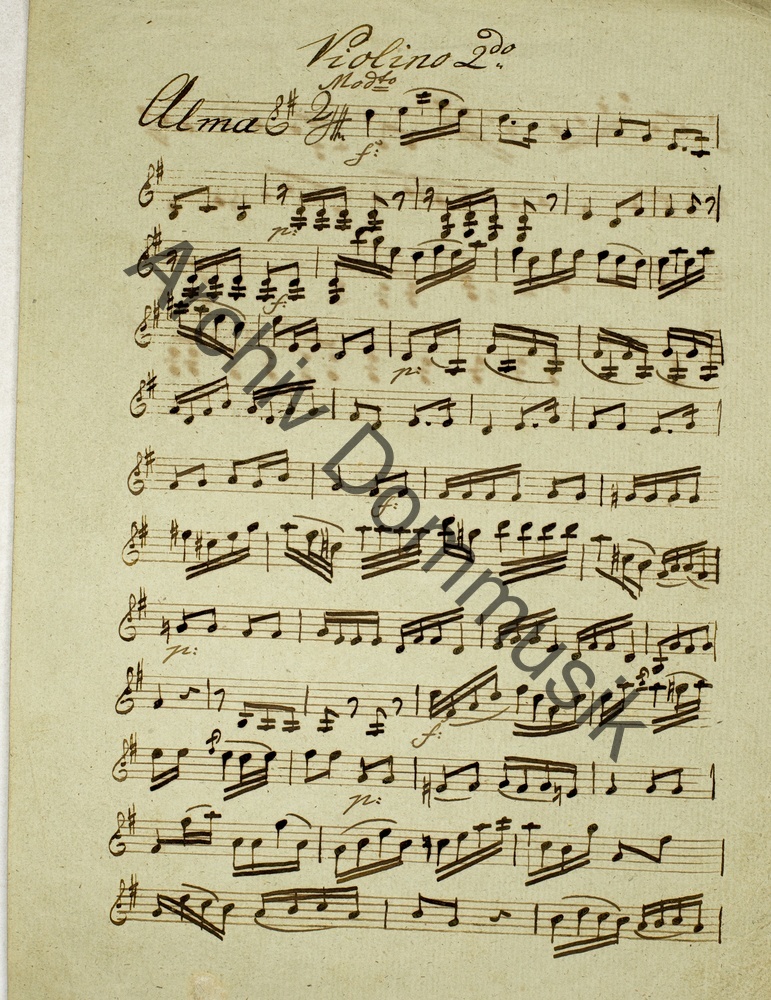 Violino 2do
Modto
Alma 2/4
f:
p:
f:
p:
f:
p:
f:
p:
Archiv Dommusik